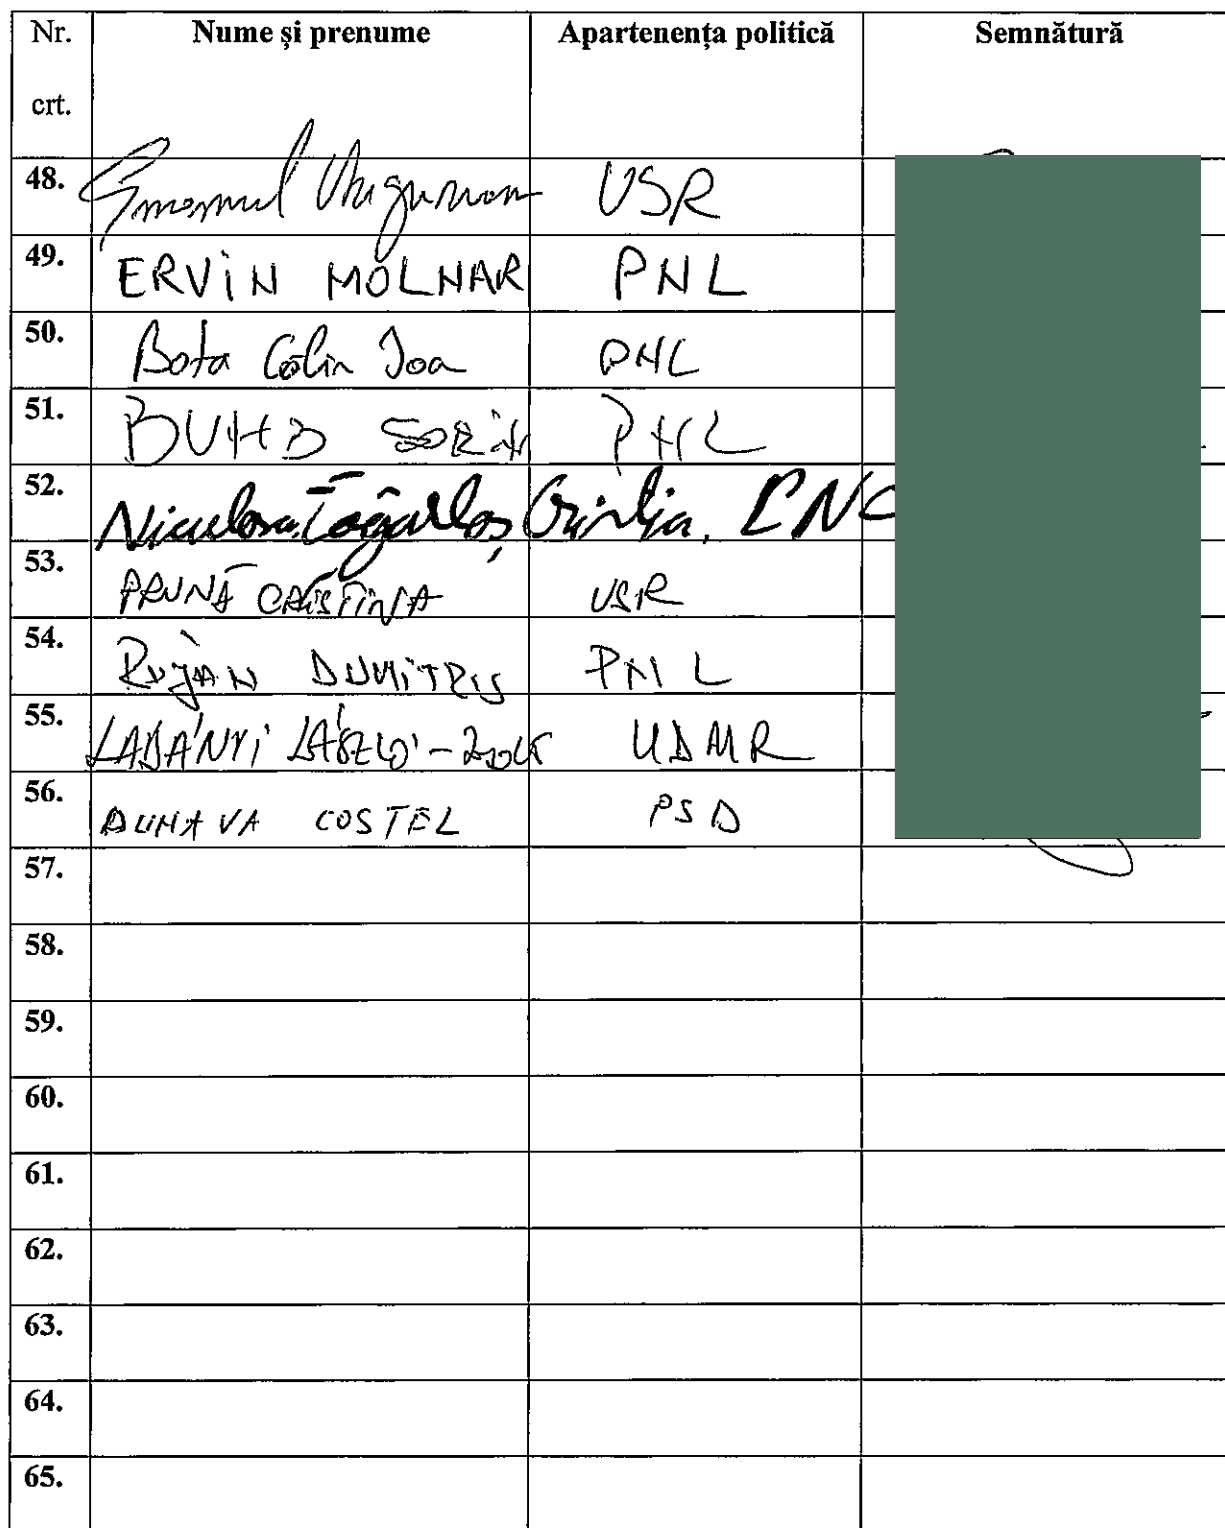 Nr. crt. Nume și prenume Apartenența politică Semnătură
48. Emanuel Ungureanu USR
49. ERViN MOLNAR PNL
50. Bota Călin Ioa PNL
51. BUMB SORiN PNL
52. Niculina Cristina. PNL
53. PRUNĂ CRISTINA USR
54. RujAN DUMiTRU PNL
55. LADÁNYI LÁSZLÓ-ZSOLT UDMR
56. DUNAVA COSTEL PSD
57.
58.
59.
60.
61.
62.
63.
64.
65.